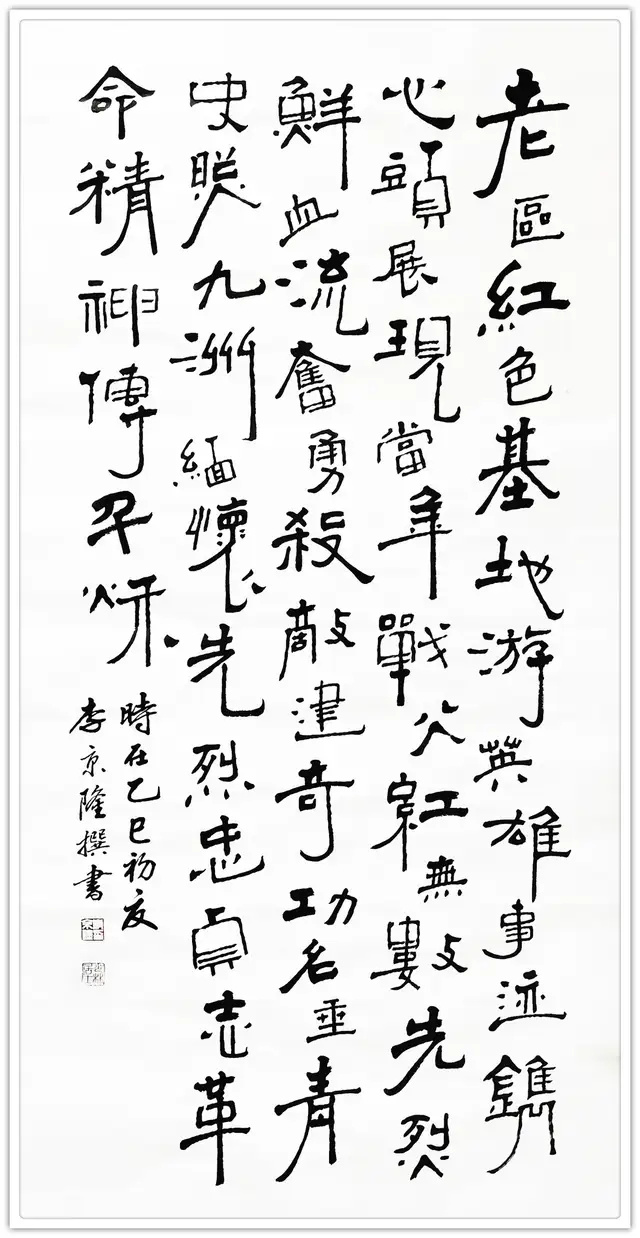 老區紅色基地游英雄事迹鐫
心頭展現當年戰火紅無數先烈
鮮血流奮勇殺敵建奇功名垂青
史照九洲緬懷先烈忠貞志革
命精神傳千秋
時在乙巳初夏
李京隆撰書